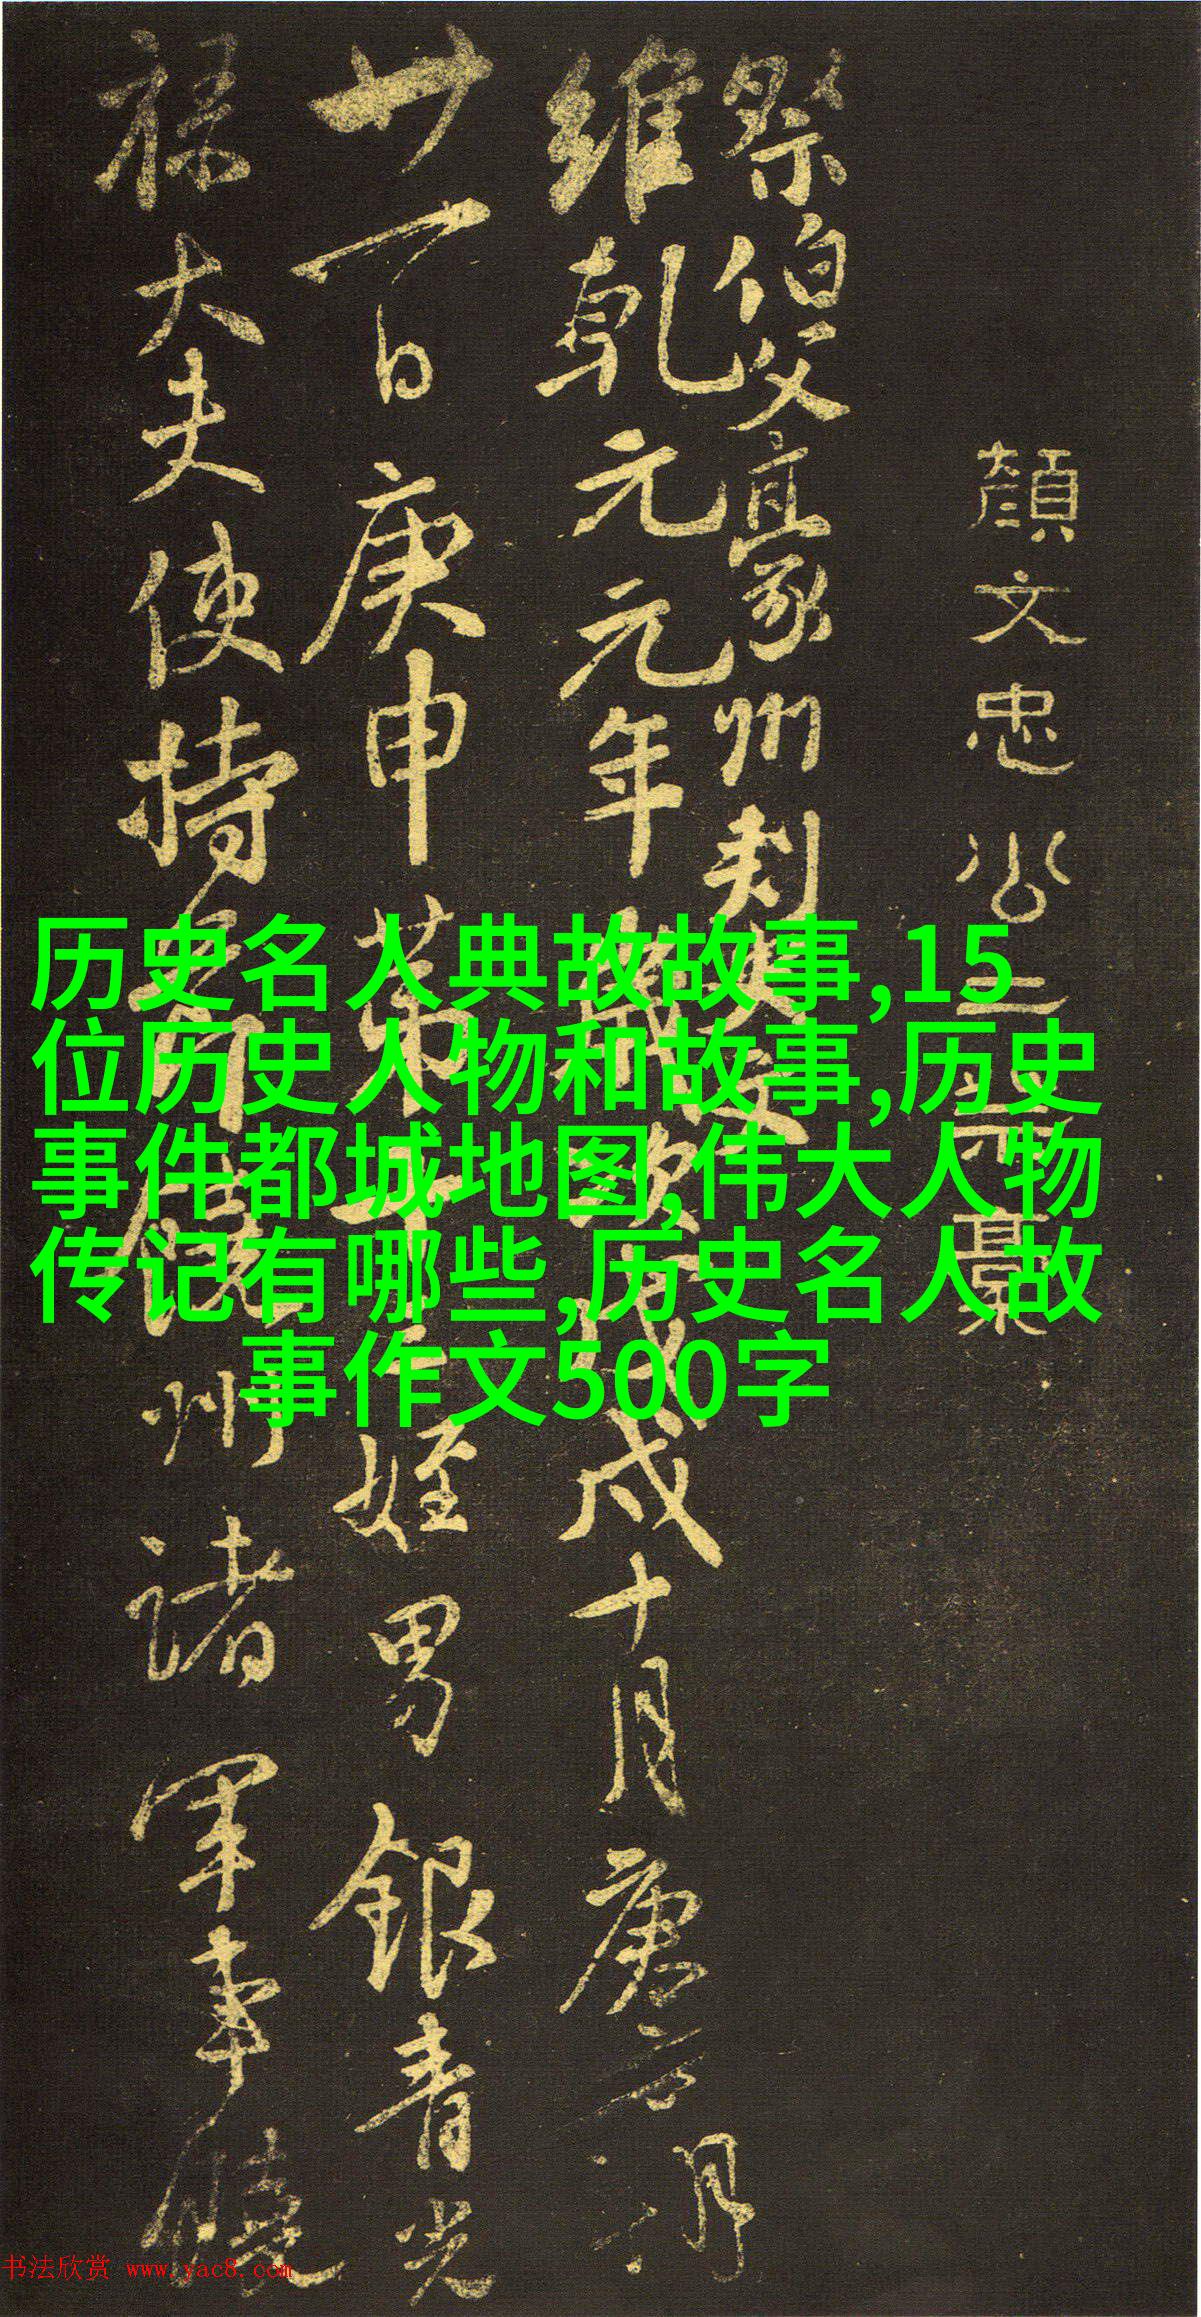 顏文忠公三祭稾
祭伯父豪州刺史文
維乾元元年歲次戊戌十月庚寅朔
廿一日庚申第十三姪男銀青光
祿大夫使持節饒州諸軍事饒
历史名人典故故事,15
位历史人物和故事,历史
事件都城地图,伟大人物
传记有哪些,历史名人故
事作文500字
书法欣赏 www.yac8.com